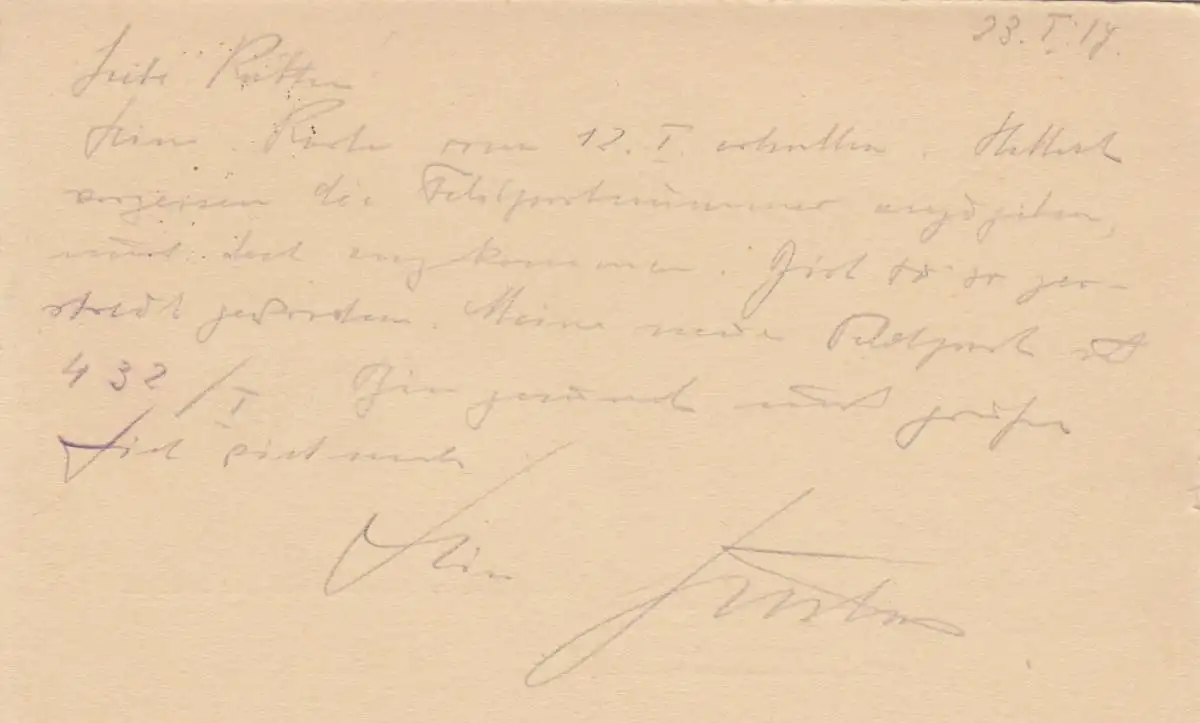 23. I. 17.
Liebe
Deine Karte vom 12. I. erhalten. Hattest
vergessen die Feldpostnummer anzugeben,
und doch angekommen. Bist so zer-
streut geworden. Meine neue Feldpost ist
432/I Bin gesund und grüße
Dich vielmals
Dein